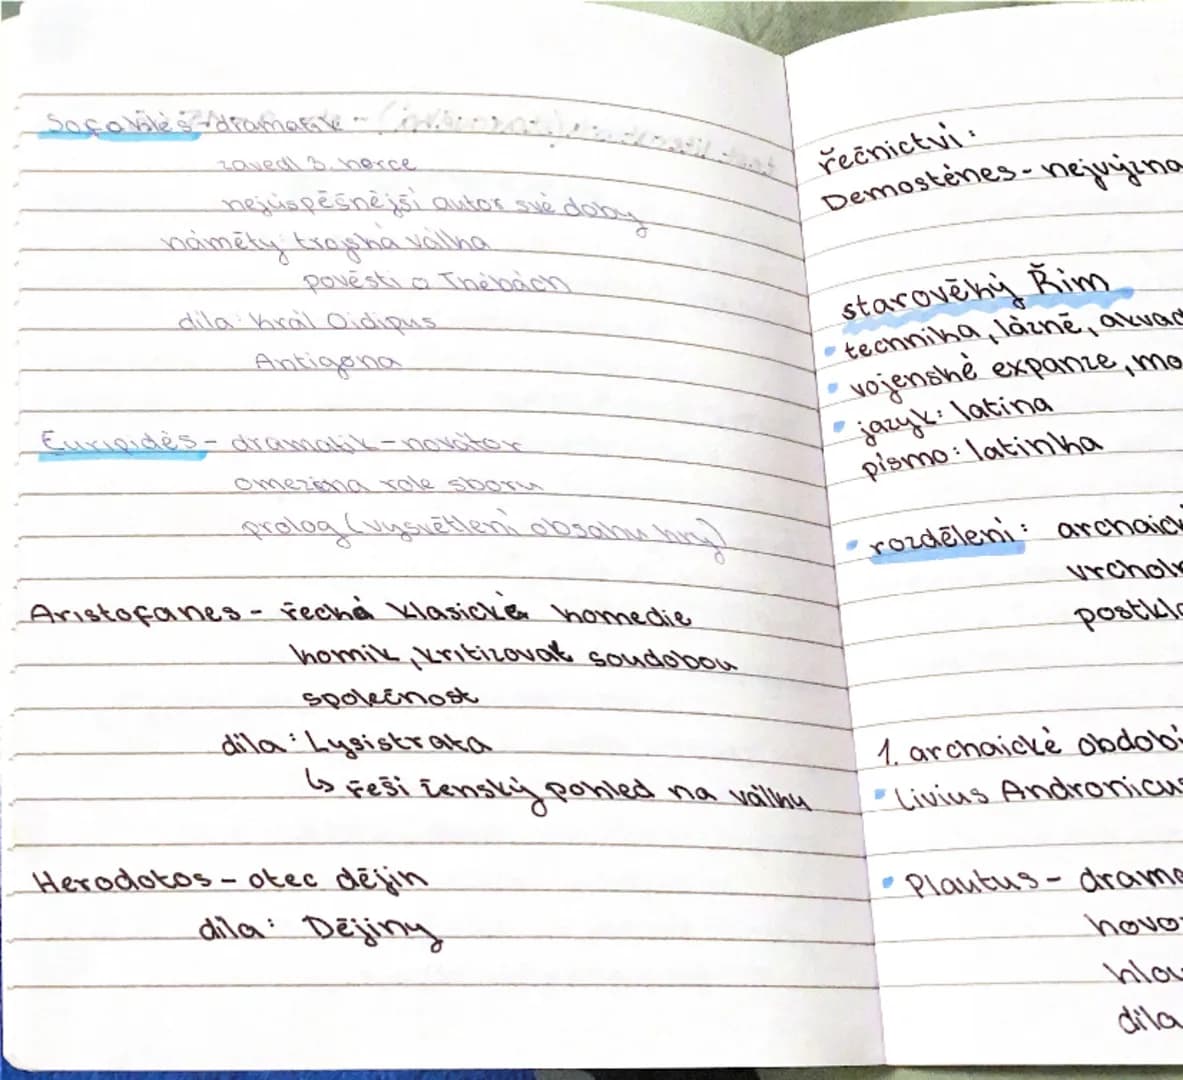 Sofoklés - dramatik -
zavedl 3. herce
nejúspěšnější autor své doby
náměty: trojská válka
pověsti o Thébách
díla: král Oidipus
Antigona
Euripidés - dramatik - novátor
omezena role sboru
prolog (vysvětlení obsahu hry)
Aristofanes - řecká klasické komedie
komik, kritizoval soudobou
společnost
díla: Lysistrata
↳ řeší ženský pohled na válku
Herodotos - otec dějin
díla: Dějiny
řečnictví:
Demosténes - nejvýzna
starověký Řím
• technika, lázně, akvad
• vojenské expanze, mo
• jazyk: latina
písmo: latinka
• rozdělení: archaick
vrchol
postkla
1. archaické období
• Livius Andronicus
• Plautus - drama
hovo
hlav
díla